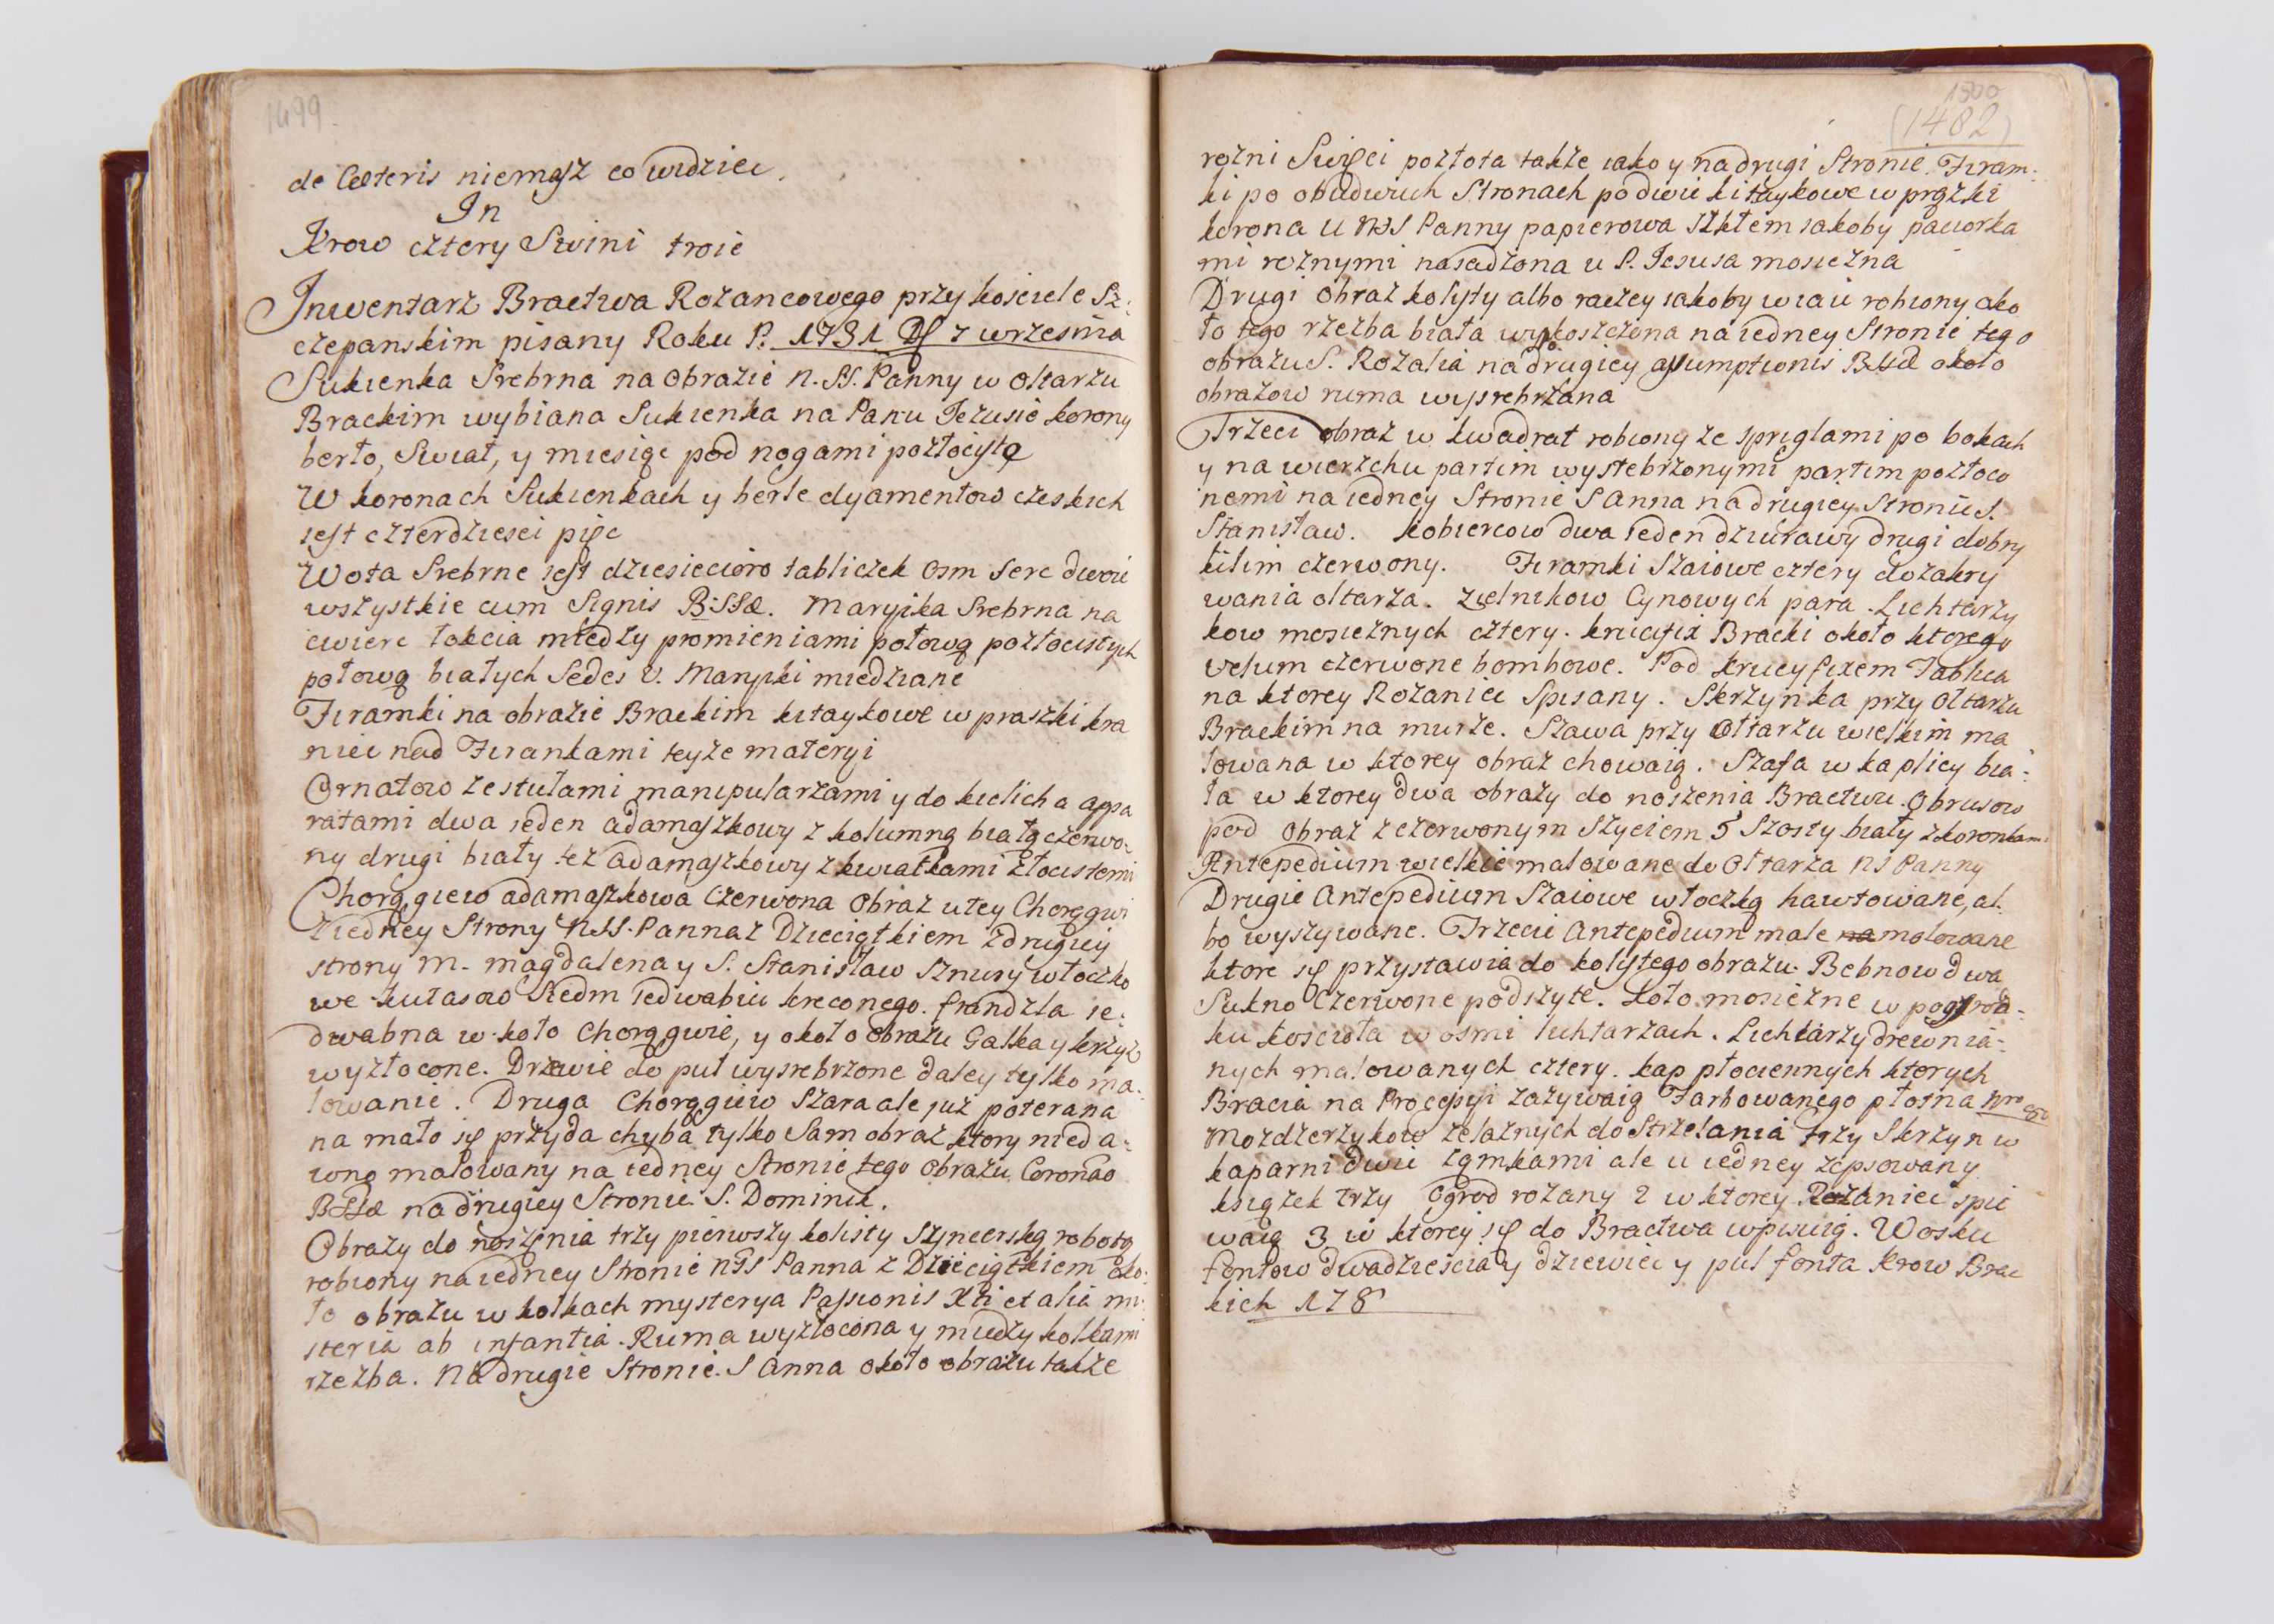 1499
de Ceteris niemasz co widziec.
In
Krow cztery Swini troie
Inwentarz Bractwa Rozancowego przy kosciele Sz:
czepanskim pisany Roku P. 1731 D 7 wrzesnia
Sukienka Srebrna na Obrazie N. SS. Panny w Oltarzu
Brackim wybiana Sukienka na Panu Jezusie korony
berło, Swiat, y miesiąc pod nogami pozłocistę
W koronach Sukienkach y berle dyamentow czeskich
iest czterdziesci pięc
Wota Srebrne iest dziesiecioro tabliczek Osm Serc dwoie
wszystkie cum Signis B:SSæ. Maryika Srebrna na
cwierc łokcia między promieniami połową pozłocistych
połową białych Sedes v. Maryiki miedziane
Firamki na obrazie Brackim kitaykowe w praszki kra
niec nad Firankami teyze materyi
Ornatow ze stułami manipularzami y do kielicha appa
ratami dwa ieden adamaszkowy z kolumną białą czerwo:
ny drugi biały tez adamaszkowy z kwiatkami złocistemi
Chorągiew adamaszkowa Czerwona Obraz u tey Chorągwi
z iedney Strony NSS. Panna z Dzieciątkiem z drugiey
strony M. Magdalena y S. Stanisław Sznury włoczko
we kutasow Siedm iedwabiu kreconego. frandzla ie:
dwabna w koło Chorągwie, y około Obrazu Gałka y krzyz
wyzłocone. Drzewie do puł wysrebrzone daley tylko ma:
lowanie. Druga Chorągiew Szara ale juz poterana
na mało się przyda chyba tylko Sam obraz ktory nieda:
wno malowany na iedney Stronie tego Obrazu Coronao
BSSæ na drugiey Stronie S. Dominik.
Obrazy do noszenia trzy pierwszy kolisty Snycerską robotą
robiony na iedney Stronie NSS Panna z Dzieciątkiem oko:
ło obrazu w kołkach mysterya Passionis Xti et alia mi:
steria ab infantia. Ruma wyzłocona y między kołkami
rzezba. Na drugie Stronie. S Anna około obrazu takze
1500
(1482)
rozni Swięci pozłota takze iako y na drugi Stronie. Firam:
ki po obudwuch Stronach podwie kitaykowe w prązki
korona u NSS Panny papierowa Szkłem iakoby paciorka
mi roznymi nasadzona u P. Jesusa mosiezna
Drugi Obraz kolysty albo raczey iakoby w iaie robiony oko
ło tego rzezba biała wykoszczona na iedney Stronie tego
obrazu S. Rozalia na drugiey assumptionis BSSæ około
obrazow ruma wysrebrzana
Trzeci obraz w kwadrat robiony ze spriglami po bokach
y na wierzchu partim wysrebrzonymi partim pozłoco
nemi na iedney Stronie S Anna na drugiey Stronie S.
Stanisław. kobiercow dwa ieden dziurawy drugi dobry
kilim czerwony. Firamki Szaiowe cztery do zakry
wania oltarza. Zielnikow Cynowych para. Lichtarzy
kow mosieznych cztery. krucifix Bracki około ktorego
velum czerwone bombowe. Pod krucyfixem Tablica
na ktorey Rozaniec Spisany. Skrzynka przy Oltarzu
Brackim na murze. Szawa przy Oltarzu wielkim ma
lowana w ktorey obraz chowaią. Szafa w kaplicy bia:
ła w ktorey dwa obrazy do noszenia Bractwu. Obrusow
pod Obraz z czerwonym Szyciem 5 Szosty biały z koronkami
Antepedium wielkie malowane do Oltarza NS Panny
Drugie Antepedium Szaiowe włoczką hawtowane, al:
bo wyszywane. Trzecie Antepedium małe na malowane
ktore się przystawia do kolystego obrazu. Bebnow dwa
Sukno Czerwone podszyte. Koło mosiezne w posrod:
ku kosciola w osmi lichtarzach. Lichtarzy drewnia:
nych malowanych cztery. kap płociennych ktorych
Bracia na Processyi zazywaią Farbowanego płotna Nro
Mozdzerzykow zelaznych do Strzelania trzy Skrzyn w
kaparni dwie ząmkami ale u iedney zepsowany
książek trzy Ogrod rozany 2 w ktorey Rozaniec spie
waią 3 w ktorej się do Bractwa wpisuią. Wosku
fontow dwadziescia y dziewiec y puł fonta Krow Brac
kich 178